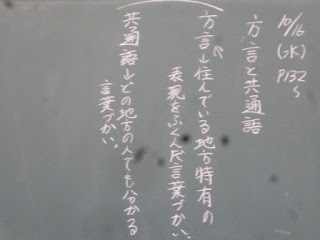 10/16
(GK)
P132
〜
方言と共通語
方言→住んでいる地方特有の
表現をふくんだ言葉づかい。
共通語→どの地方の人でも分かる
言葉づかい。